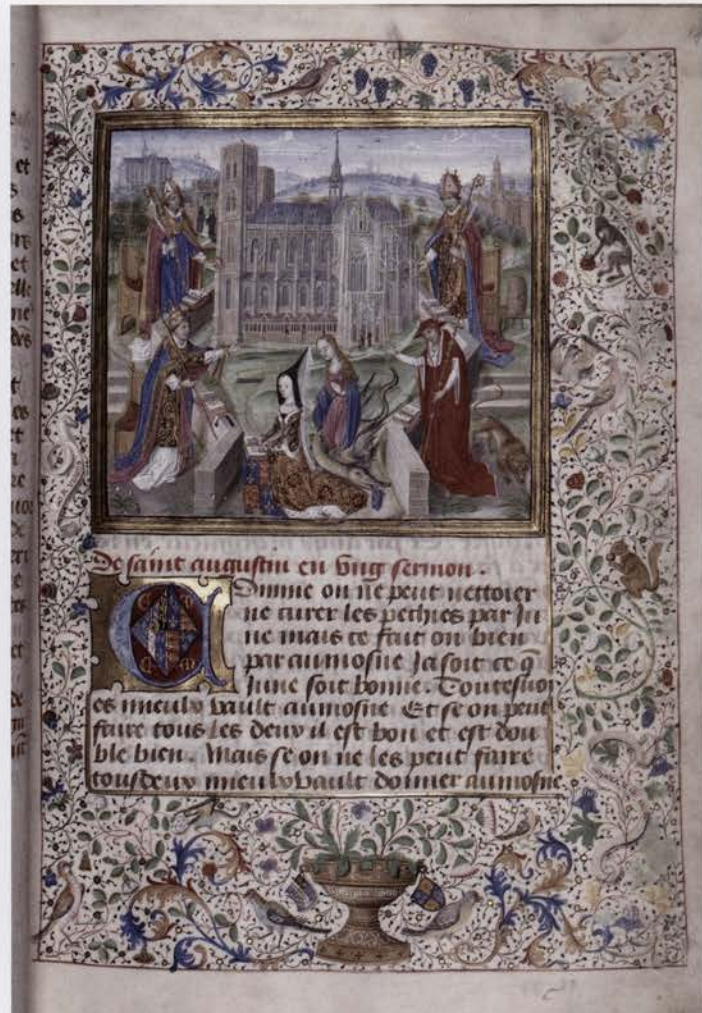 De saint augustin en ung sermon .
Comme on ne peut nettoier
ne curer les pechies par Ju
ne mais ce fait on bien
par aumosne Ja soit ce q̄
June soit bonne . Toutesuoi
es mieulx vault aumosne Et se on peut
faire tous les deux il est bon et est dou
ble bien . Mais se on ne les peut faire
tousdeux mieulx vault donner aumosne